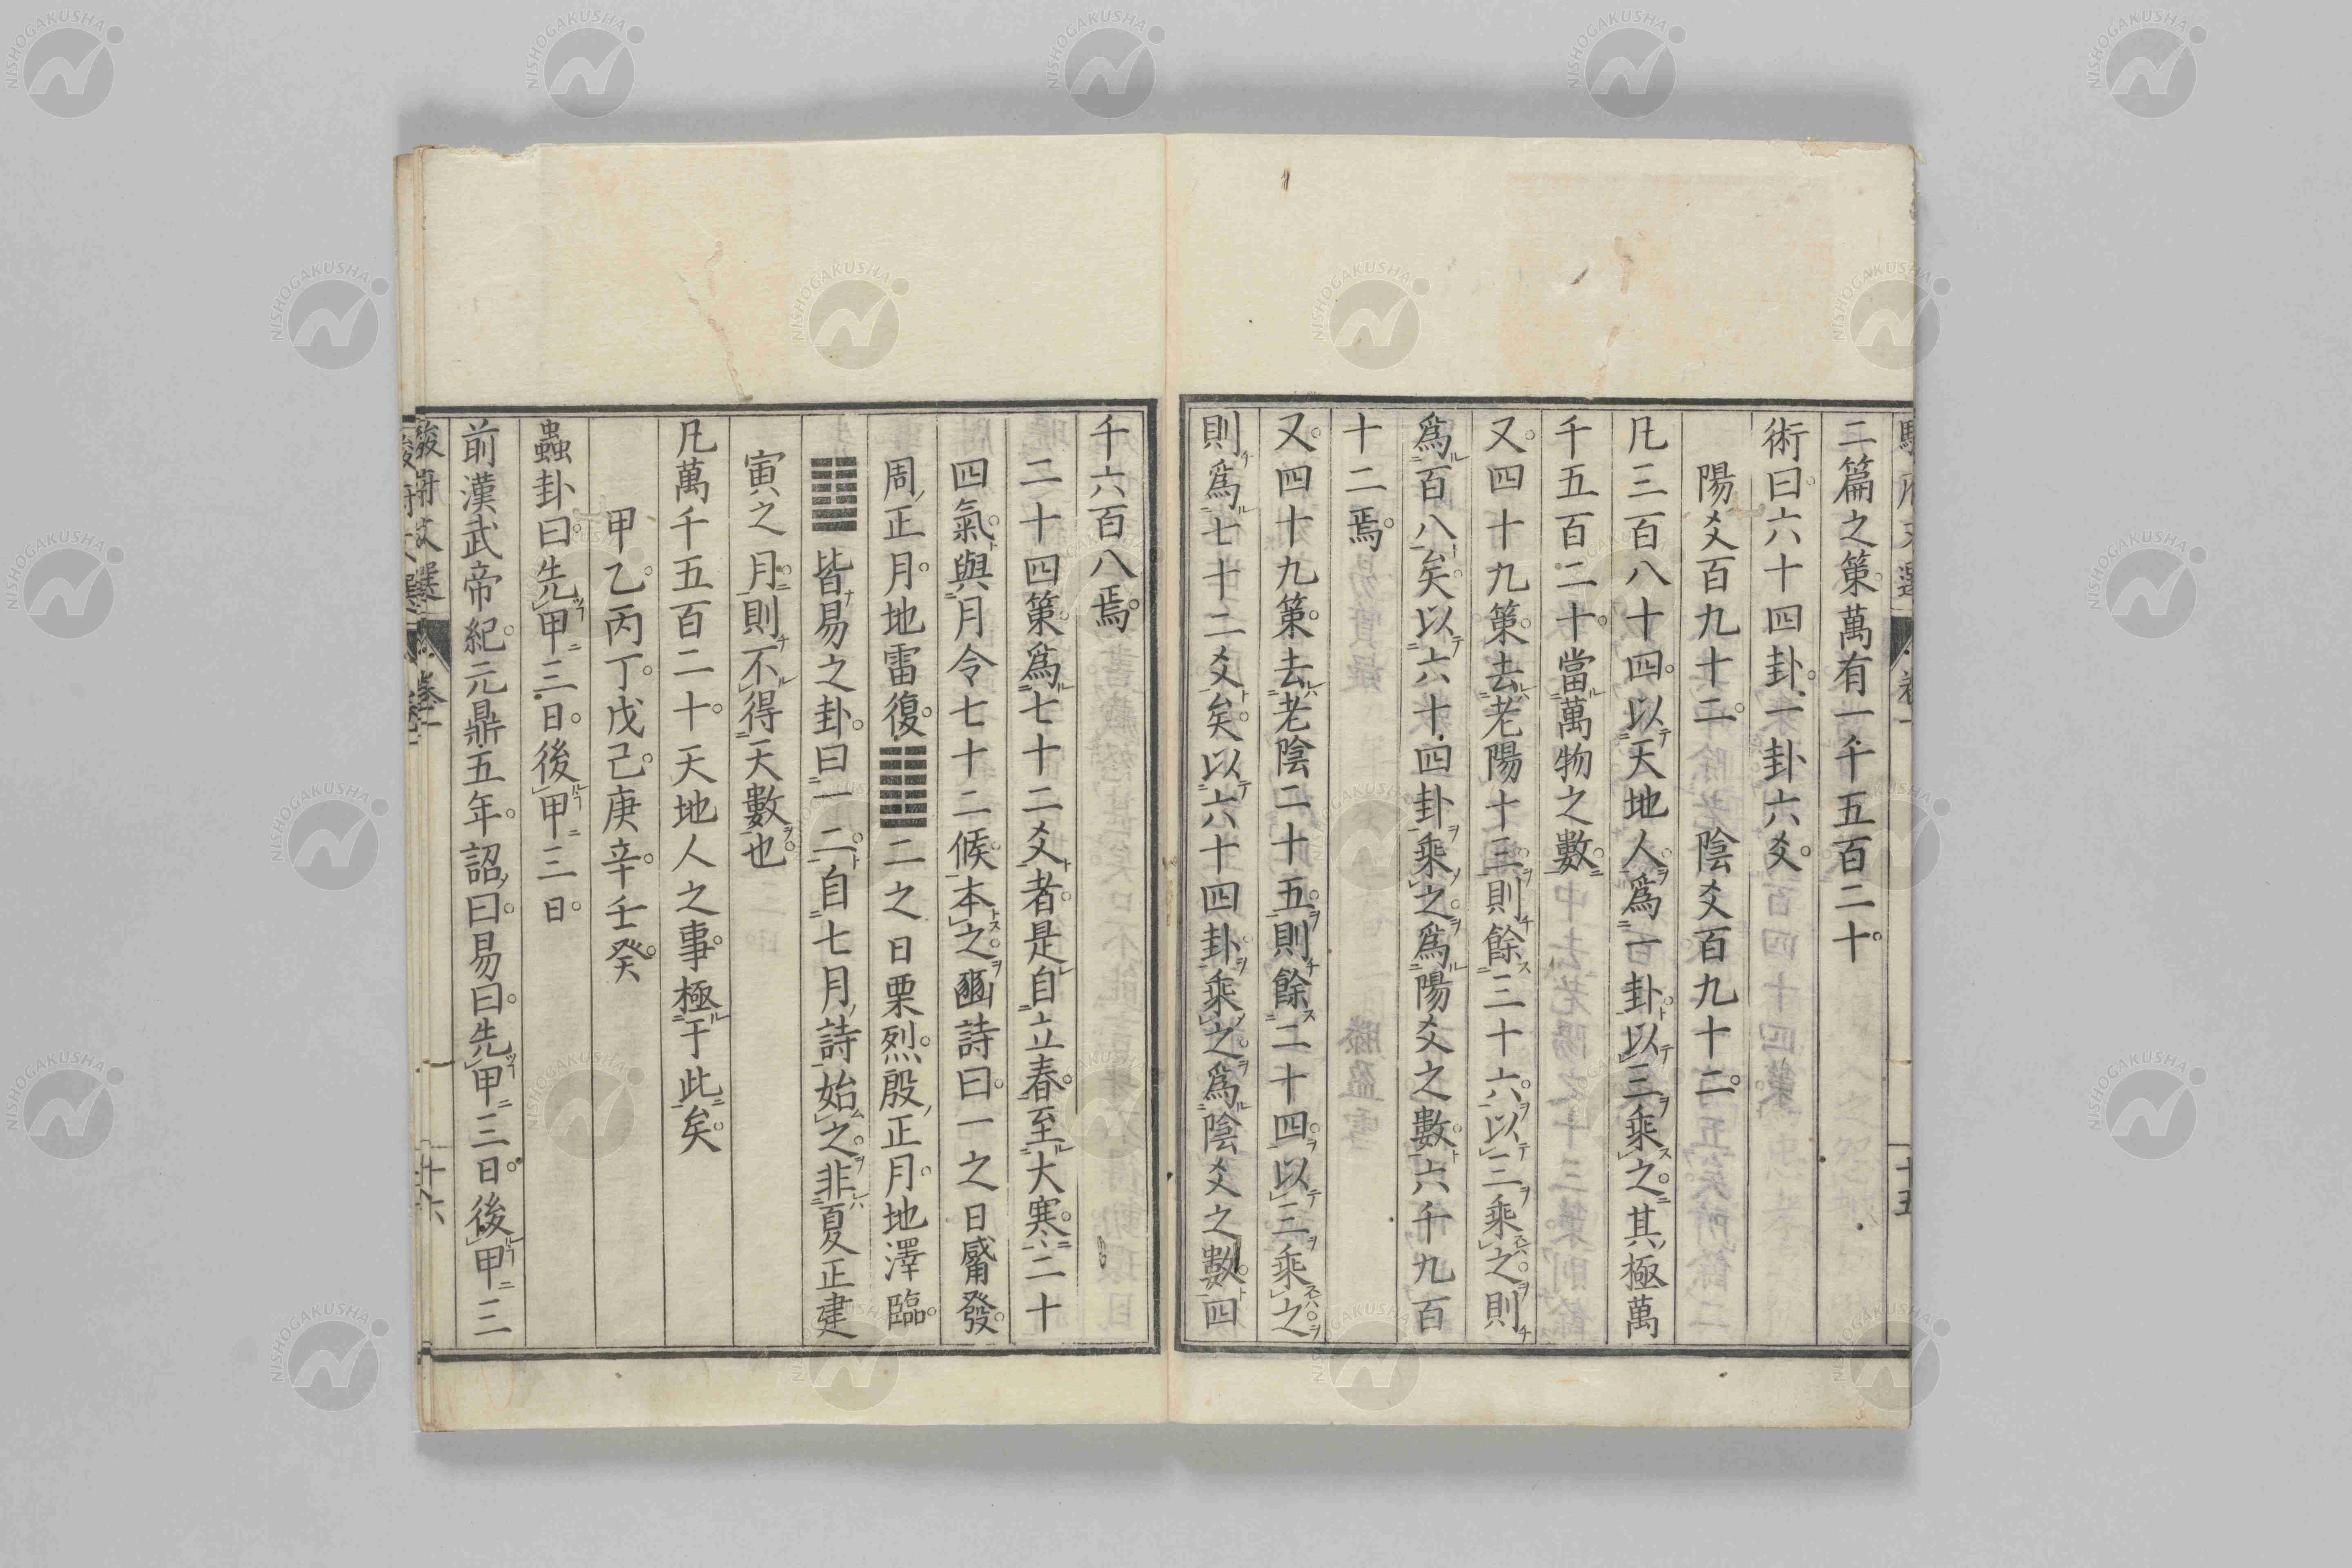 二篇之策萬有一千五百二十
術曰六十四卦一卦六爻
陽爻百九十二 陰爻百九十二
凡三百八十四以天地人爲一卦以三乘之其極萬
千五百二十當萬物之數
又四十九策去老陽十三則餘三十六以三乘之則
爲百八矣以六十四卦乘之爲陽爻之數六千九百
十二焉
又四十九策去老陰二十五則餘二十四以三乘之
則爲七十二爻矣以六十四卦乘之爲陰爻之數四
千六百八焉
二十四策爲七十二爻者是自立春至大寒二十
四氣與月令七十二候本之豳詩曰一之日觱發
周正月地雷復䷗二之日栗烈殷正月地澤臨
䷒皆易之卦曰一二自七月詩始之非夏正建
寅之月則不得天數也
凡萬千五百二十天地人之事極于此矣
甲乙丙丁戊己庚辛壬癸
蟲卦曰先甲三日後甲三日
前漢武帝紀元鼎五年詔曰易曰先甲三日後甲三
駿府文選 卷一 十六
十五
NISHOGAKUSHA